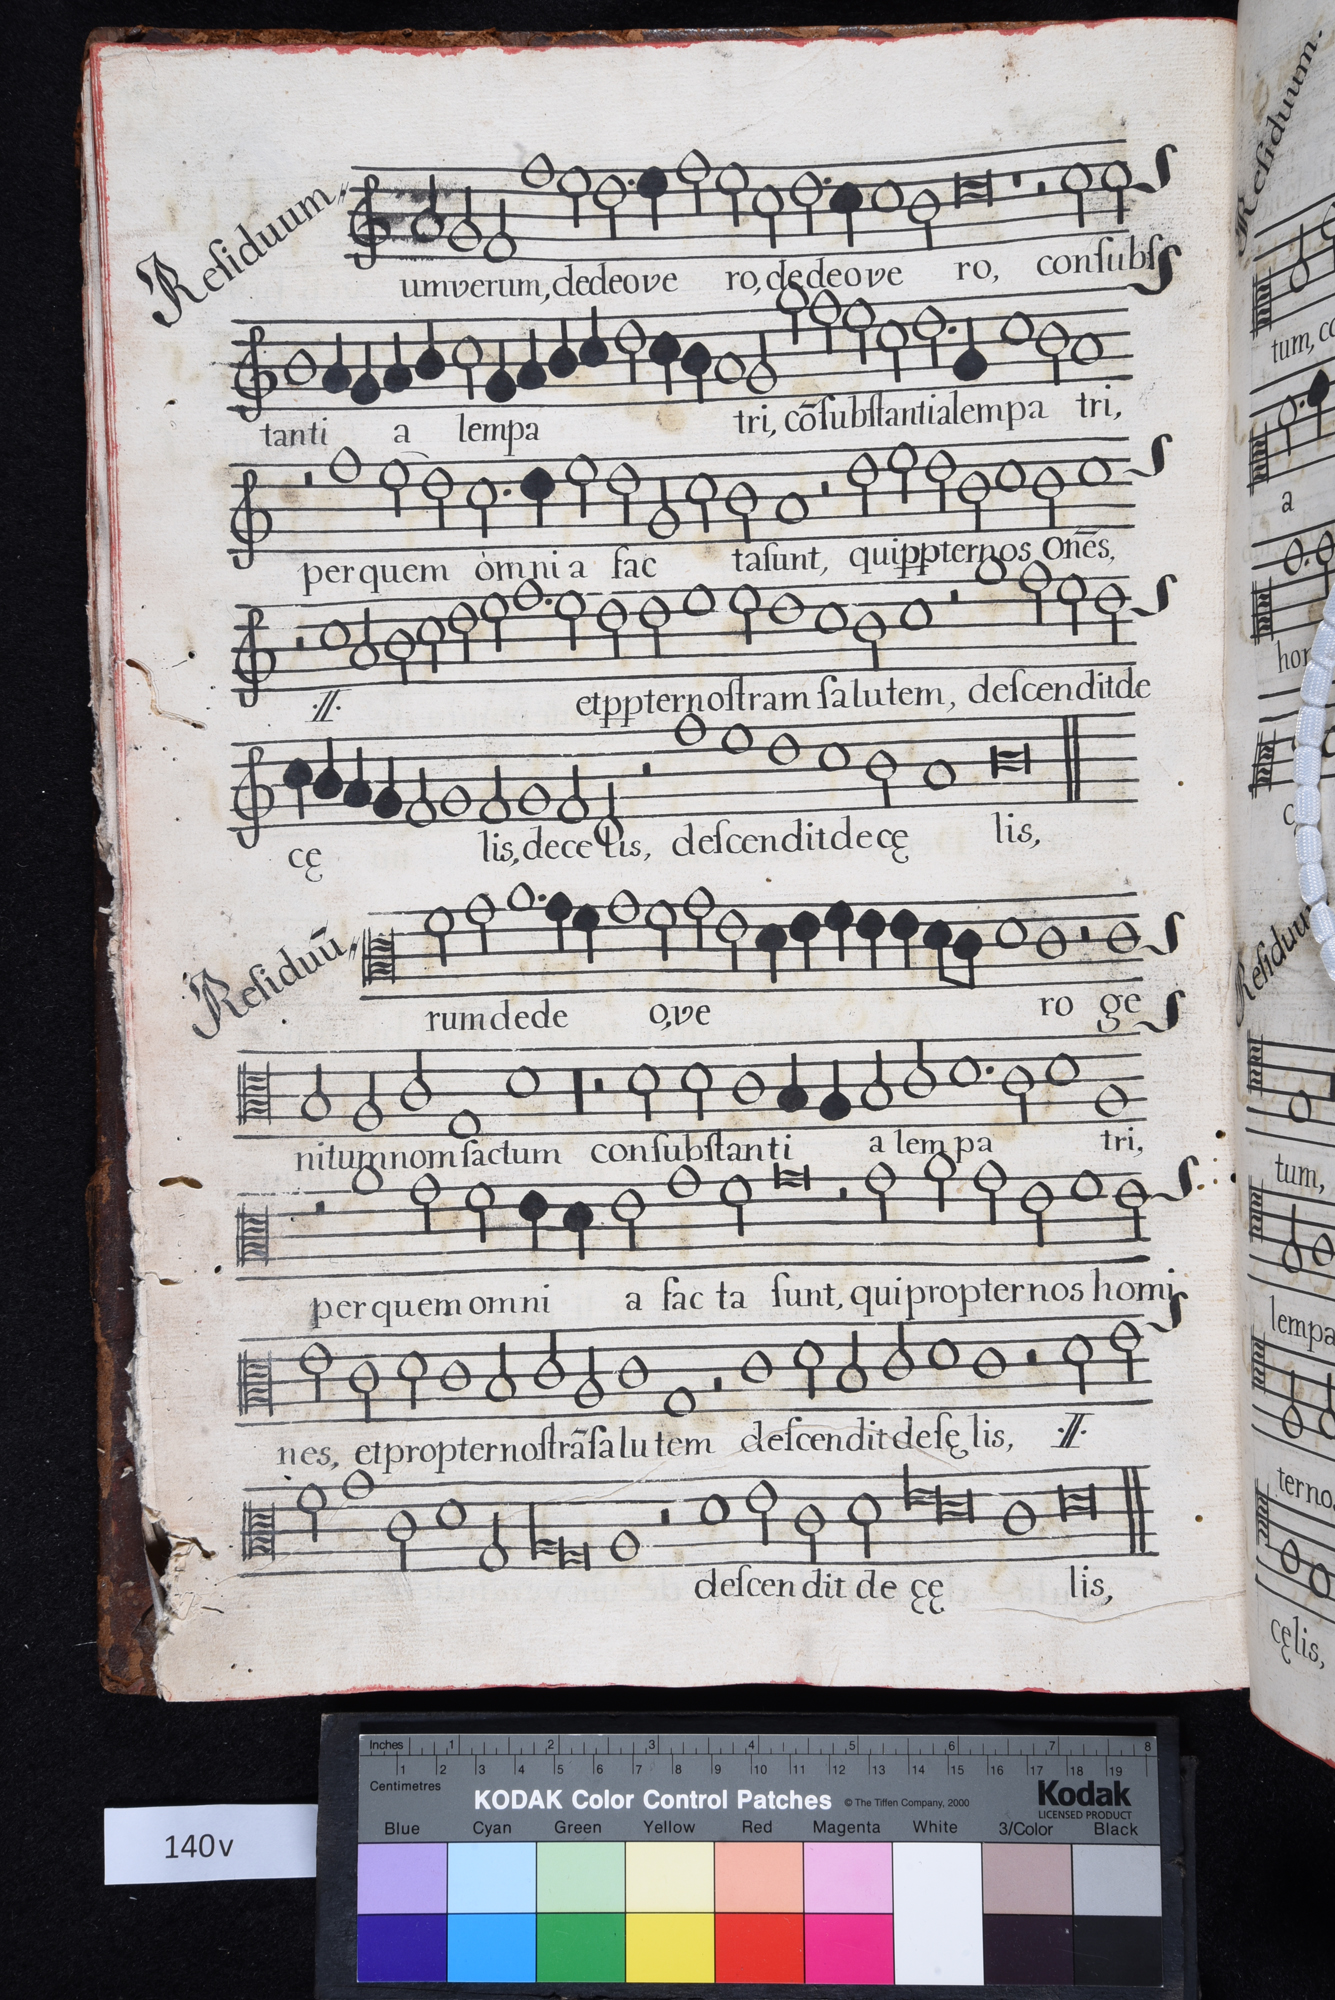 Residuum
umverum, dedeove ro, dedeove ro, consubs
tanti a lempa tri, cõsubstantialempa tri,
per quem omni a fac tasunt, quippternos Onẽs,
.//. etppternostram salutem, descenditde
cę lis, dece lis, descenditdecę lis,
Residuū
rum dede o, ve ro ge
nitumnomfactum consubstanti a lem pa tri,
per quem omni a fac ta sunt, quipropternos homi
nes, etpropternostrãsalutem descenditdesę lis, .//.
descendit de çę lis,
Residuum.
tum, co
a
hor
Residuu
tum,
lempa
terno
cęlis,
140v
Inches 1 2 3 4 5 6 7 8
Centimetres 1 2 3 4 5 6 7 8 9 10 11 12 13 14 15 16 17 18 19
KODAK Color Control Patches © The Tiffen Company, 2000 Kodak
LICENSED PRODUCT
Blue Cyan Green Yellow Red Magenta White 3/Color Black